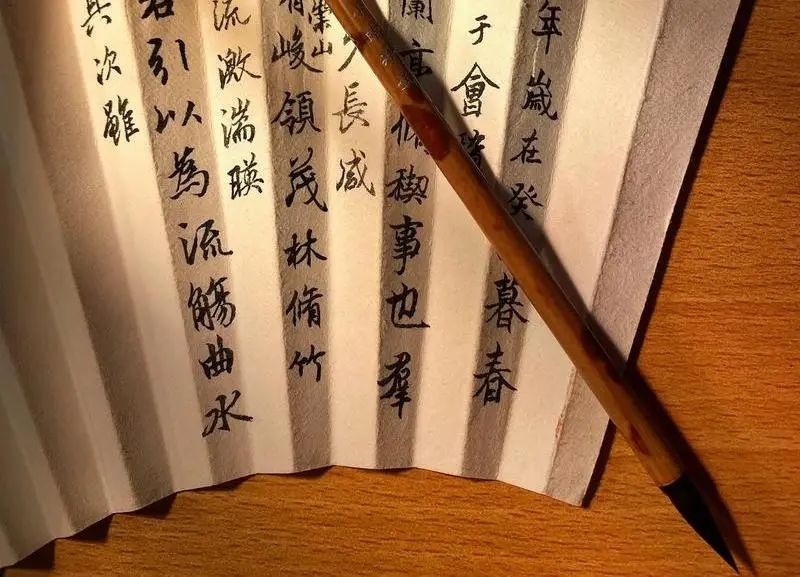 年歲在癸暮春
于會
蘭亭脩禊事也羣
長咸
有崇山峻領茂林脩竹
流激湍暎
右引以為流觴曲水
其次雖